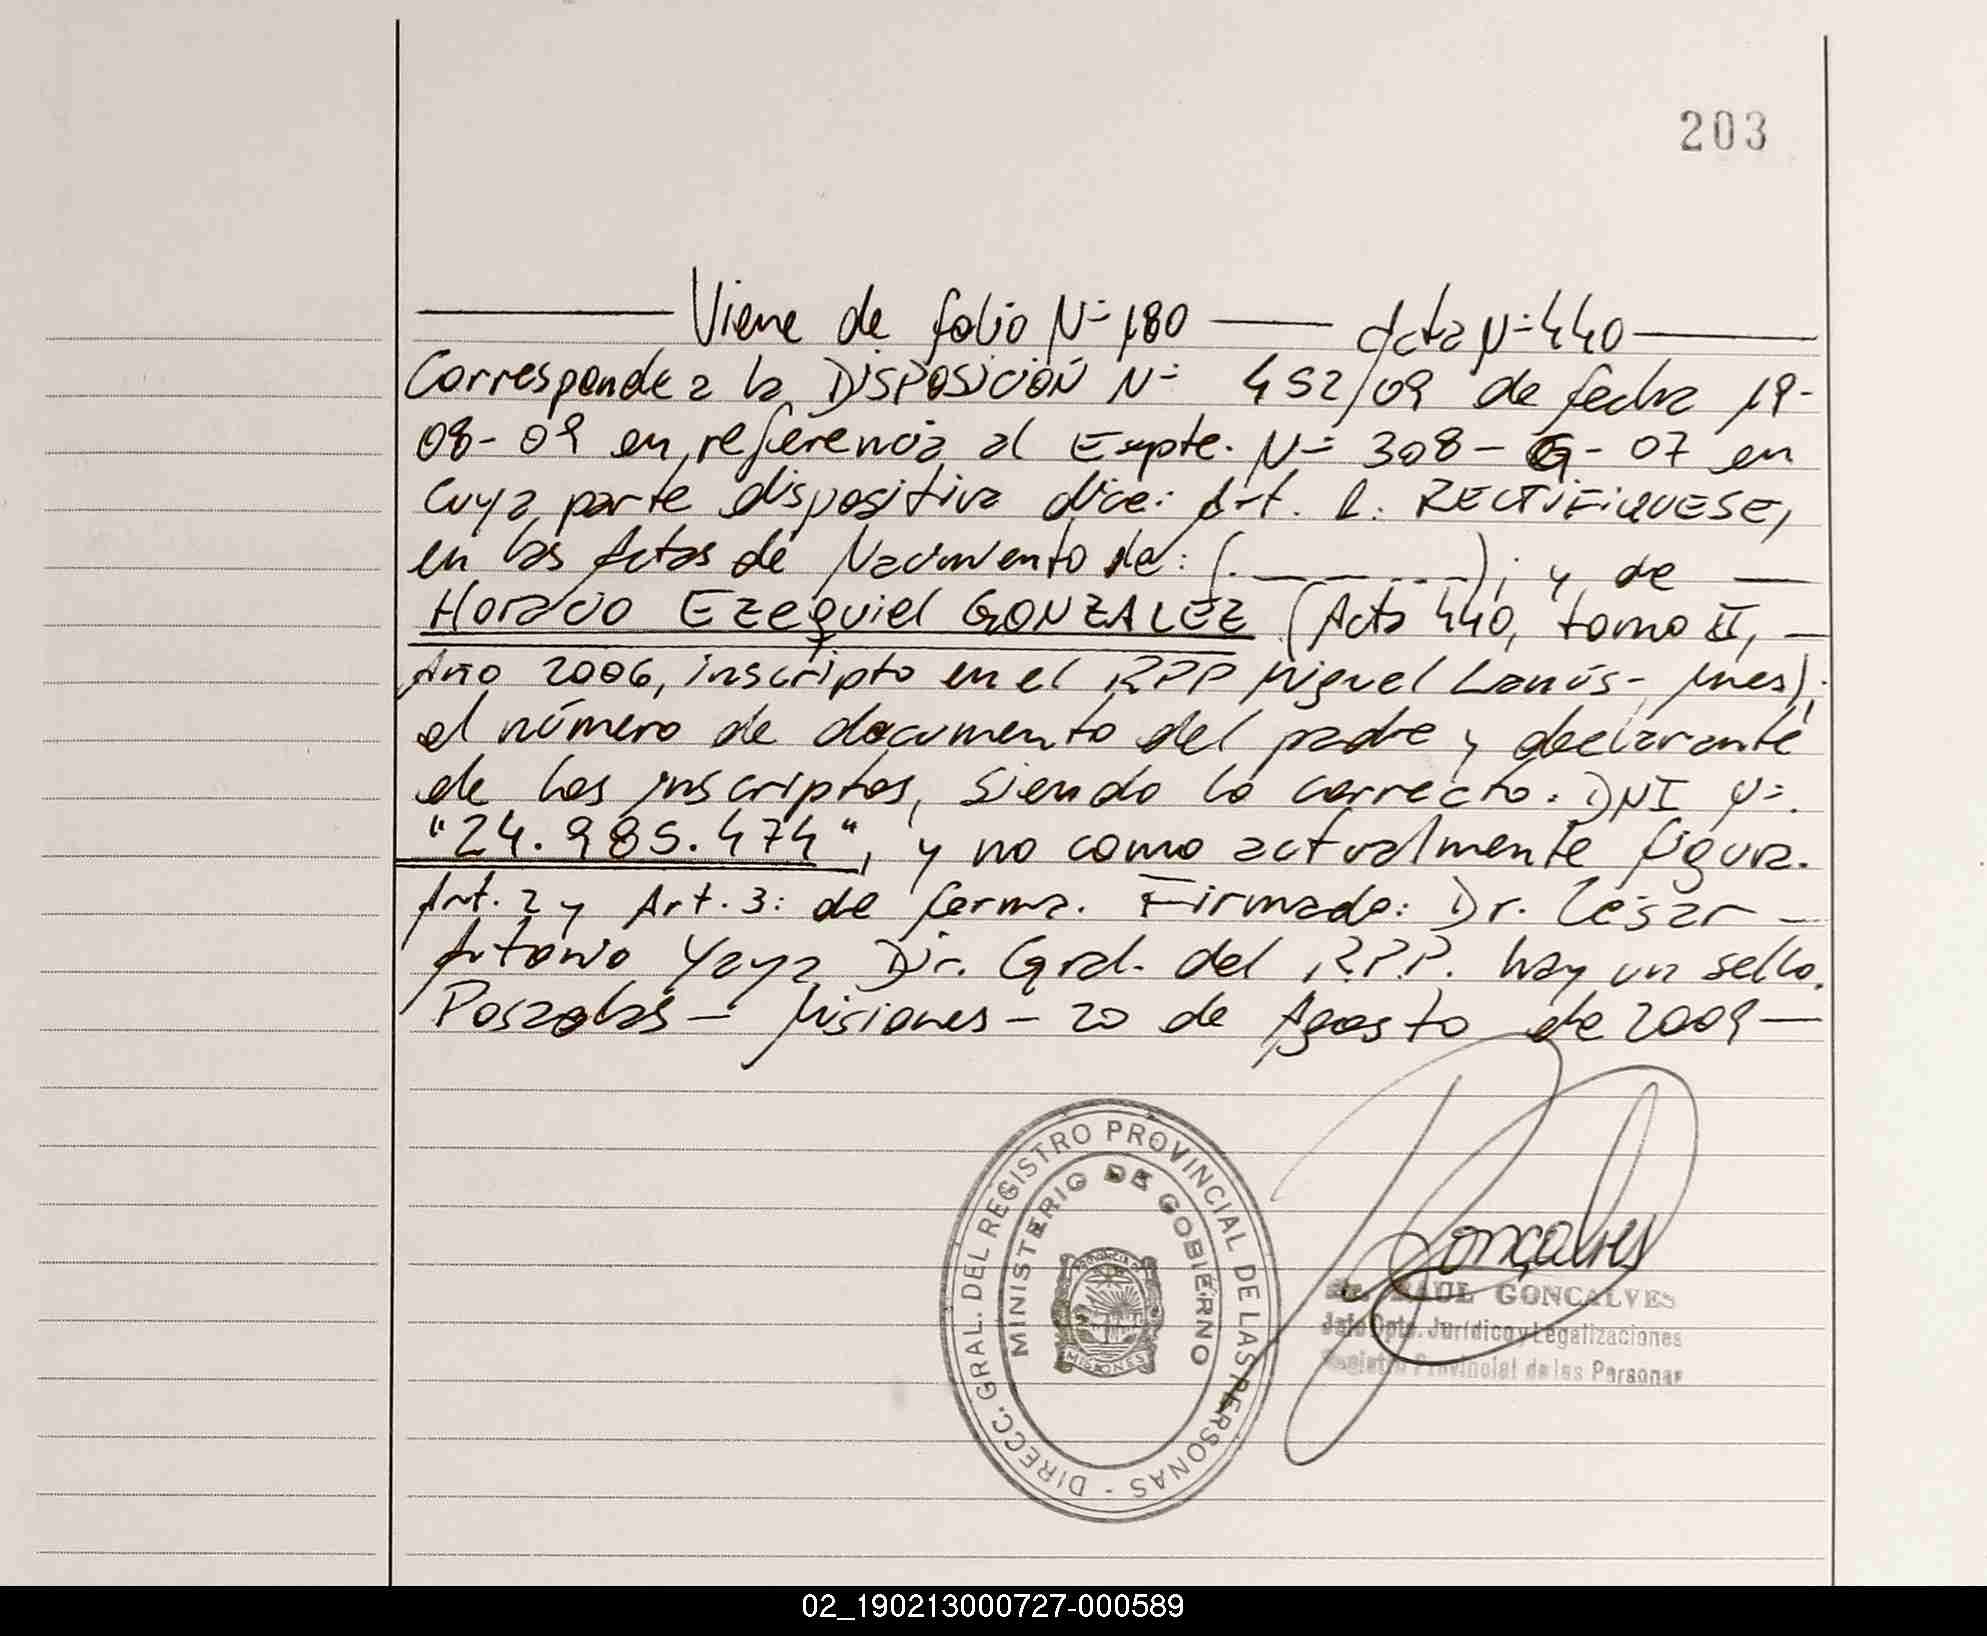 203
Viene de folio Nº 180 — Acta Nº 440
Corresponde a la DISPOSICIÓN Nº 452/09 de fecha 19-
08-09 en referencia al Expte. Nº 308-G-07 en
cuya parte dispositiva dice: Art. 1: RECTIFIQUESE,
en las Actas de Nacimiento de: (. _ _ _ . . . _); y de —
Horacio Ezequiel GONZALEZ (Acta 440, tomo II, —
Año 2006, inscripto en el RPP Miguel Lanús - Mnes);
el número de documento del padre y declarante
de los inscriptos, siendo lo correcto: DNI Nº.
"24.985.474", y no como actualmente figura.
Art. 2 y Art. 3: de forma. Firmado: Dr. César -
Antonio Yaya Dir. Gral. del R.P.P. hay un sello.
Posadas - Misiones - 20 de Agosto de 2009 —
DIRECC. GRAL. DEL REGISTRO PROVINCIAL DE LAS PERSONAS -
MINISTERIO DE GOBIERNO
MISIONES
Gonçalves
RAUL GONCALVES
Jefe Dpto. Jurídico y Legalizaciones
Registro Provincial de las Personas
02_190213000727-000589